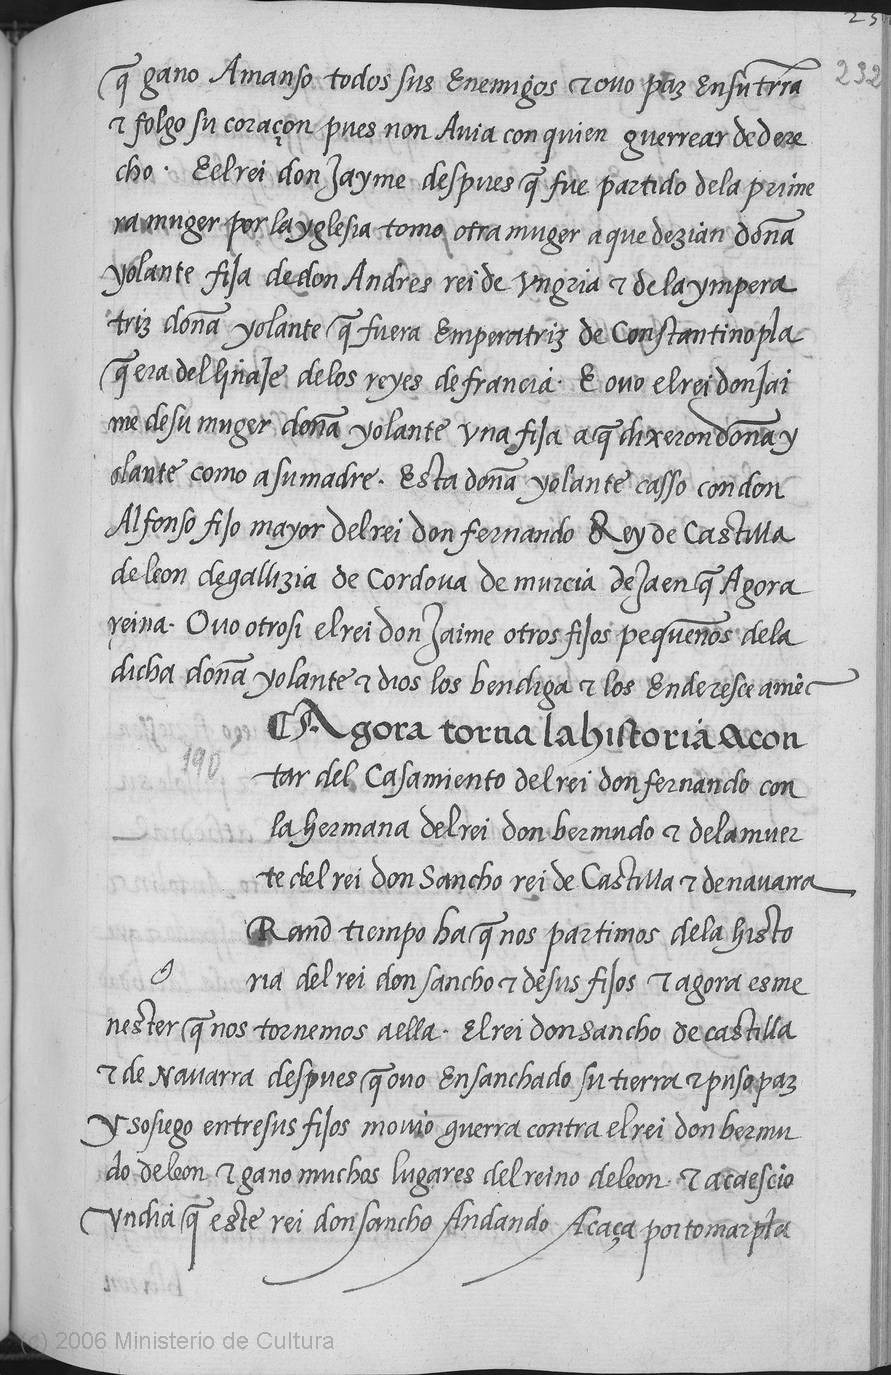 232
q̃ gano Amanso todos sus Enemigos ⁊ ouo paz En su trr̃a
⁊ folgo su coraçon pues non Auia con quien guerrear de dere
cho · E el rei don Jayme despues q̃ fue partido de la prime
ra muger por la yglesia tomo otra muger a que dezian doña
yolante fija de don Andres rei de Vngria ⁊ de la ympera
triz doña yolante q̃ fuera Emperatriz de Constantinopla
q̃ era del linaje de los reyes de francia · E ouo el rei don Jai
me de su muger doña yolante vna fija a q̃ dixeron doña y
olante como a su madre · Esta doña yolante casso con don
Alfonso fijo mayor del rei don fernando Rey de Castilla
de leon de gallizia de Cordoua de murcia de Jaen q̃ Agora
reina · Ouo otrosi el rei don Jaime otros fijos pequeños de la
dicha doña yolante ⁊ dios los bendiga ⁊ los Enderesce amẽ
¶ Agora torna la historia a con
190
tar del Casamiento del rei don fernando con
la hermana del rei don bermudo ⁊ de la muer
te del rei don Sancho rei de Castilla ⁊ de nauarra
Rand tiempo ha q̃ nos partimos de la histo
ria del rei don sancho ⁊ de sus fijos ⁊ agora es me
nester q̃ nos tornemos a ella · El rei don Sancho de castilla
⁊ de Nauarra despues q̃ ouo Ensanchado su tierra ⁊ puso paz
y sosiego entre sus fijos mouio guerra contra el rei don bermu
do de leon ⁊ gano muchos lugares del reino de leon · ⁊ acaescio
vn dia q̃ este rei don sancho Andando A caça por tomar pla
(c) 2006 Ministerio de Cultura